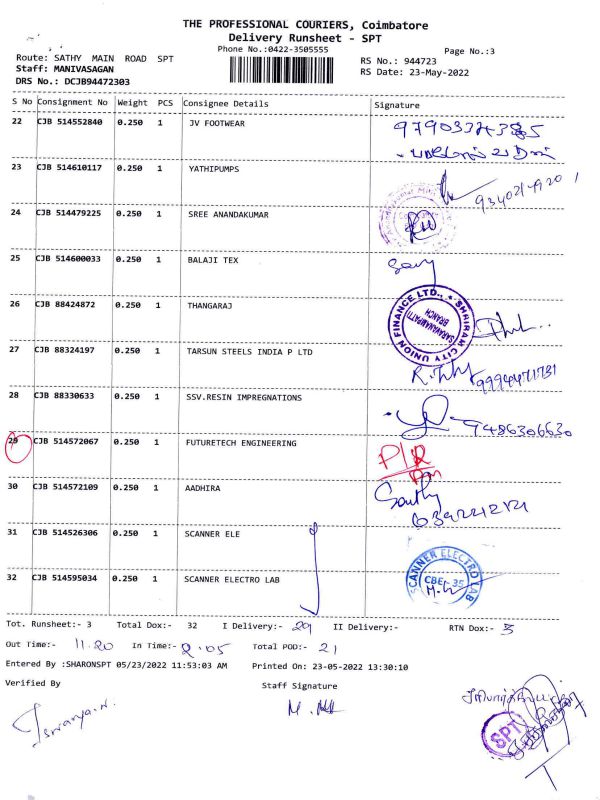 THE PROFESSIONAL COURIERS, Coimbatore
Delivery Runsheet - SPT
Phone No.:0422-3505555
Page No.:3
Route: SATHY MAIN ROAD SPT
Staff: MANIVASAGAN
DRS No.: DCJB94472303
RS No.: 944723
RS Date: 23-May-2022
S No Consignment No Weight PCS Consignee Details Signature
22 CJB 514552840 0.250 1 JV FOOTWEAR
23 CJB 514610117 0.250 1 YATHIPUMPS
24 CJB 514479225 0.250 1 SREE ANANDAKUMAR
25 CJB 514600033 0.250 1 BALAJI TEX
26 CJB 88424872 0.250 1 THANGARAJ
SHRIRAM CITY UNION FINANCE LTD.,
SARAVANAMPATTI
BRANCH
27 CJB 88324197 0.250 1 TARSUN STEELS INDIA P LTD
9994471731
28 CJB 88330633 0.250 1 SSV.RESIN IMPREGNATIONS
9486306630
29 CJB 514572067 0.250 1 FUTURETECH ENGINEERING
P/R
30 CJB 514572109 0.250 1 AADHIRA
31 CJB 514526306 0.250 1 SCANNER ELE
32 CJB 514595034 0.250 1 SCANNER ELECTRO LAB
SCANNER ELECTRO LAB
CBE-35
Tot. Runsheet:- 3 Total Dox:- 32 I Delivery:- 29 II Delivery:- RTN Dox:- 3
Out Time:- 11.20 In Time:- 2.05 Total POD:- 21
Entered By :SHARONSPT 05/23/2022 11:53:03 AM Printed On: 23-05-2022 13:30:10
Verified By Staff Signature
SPT